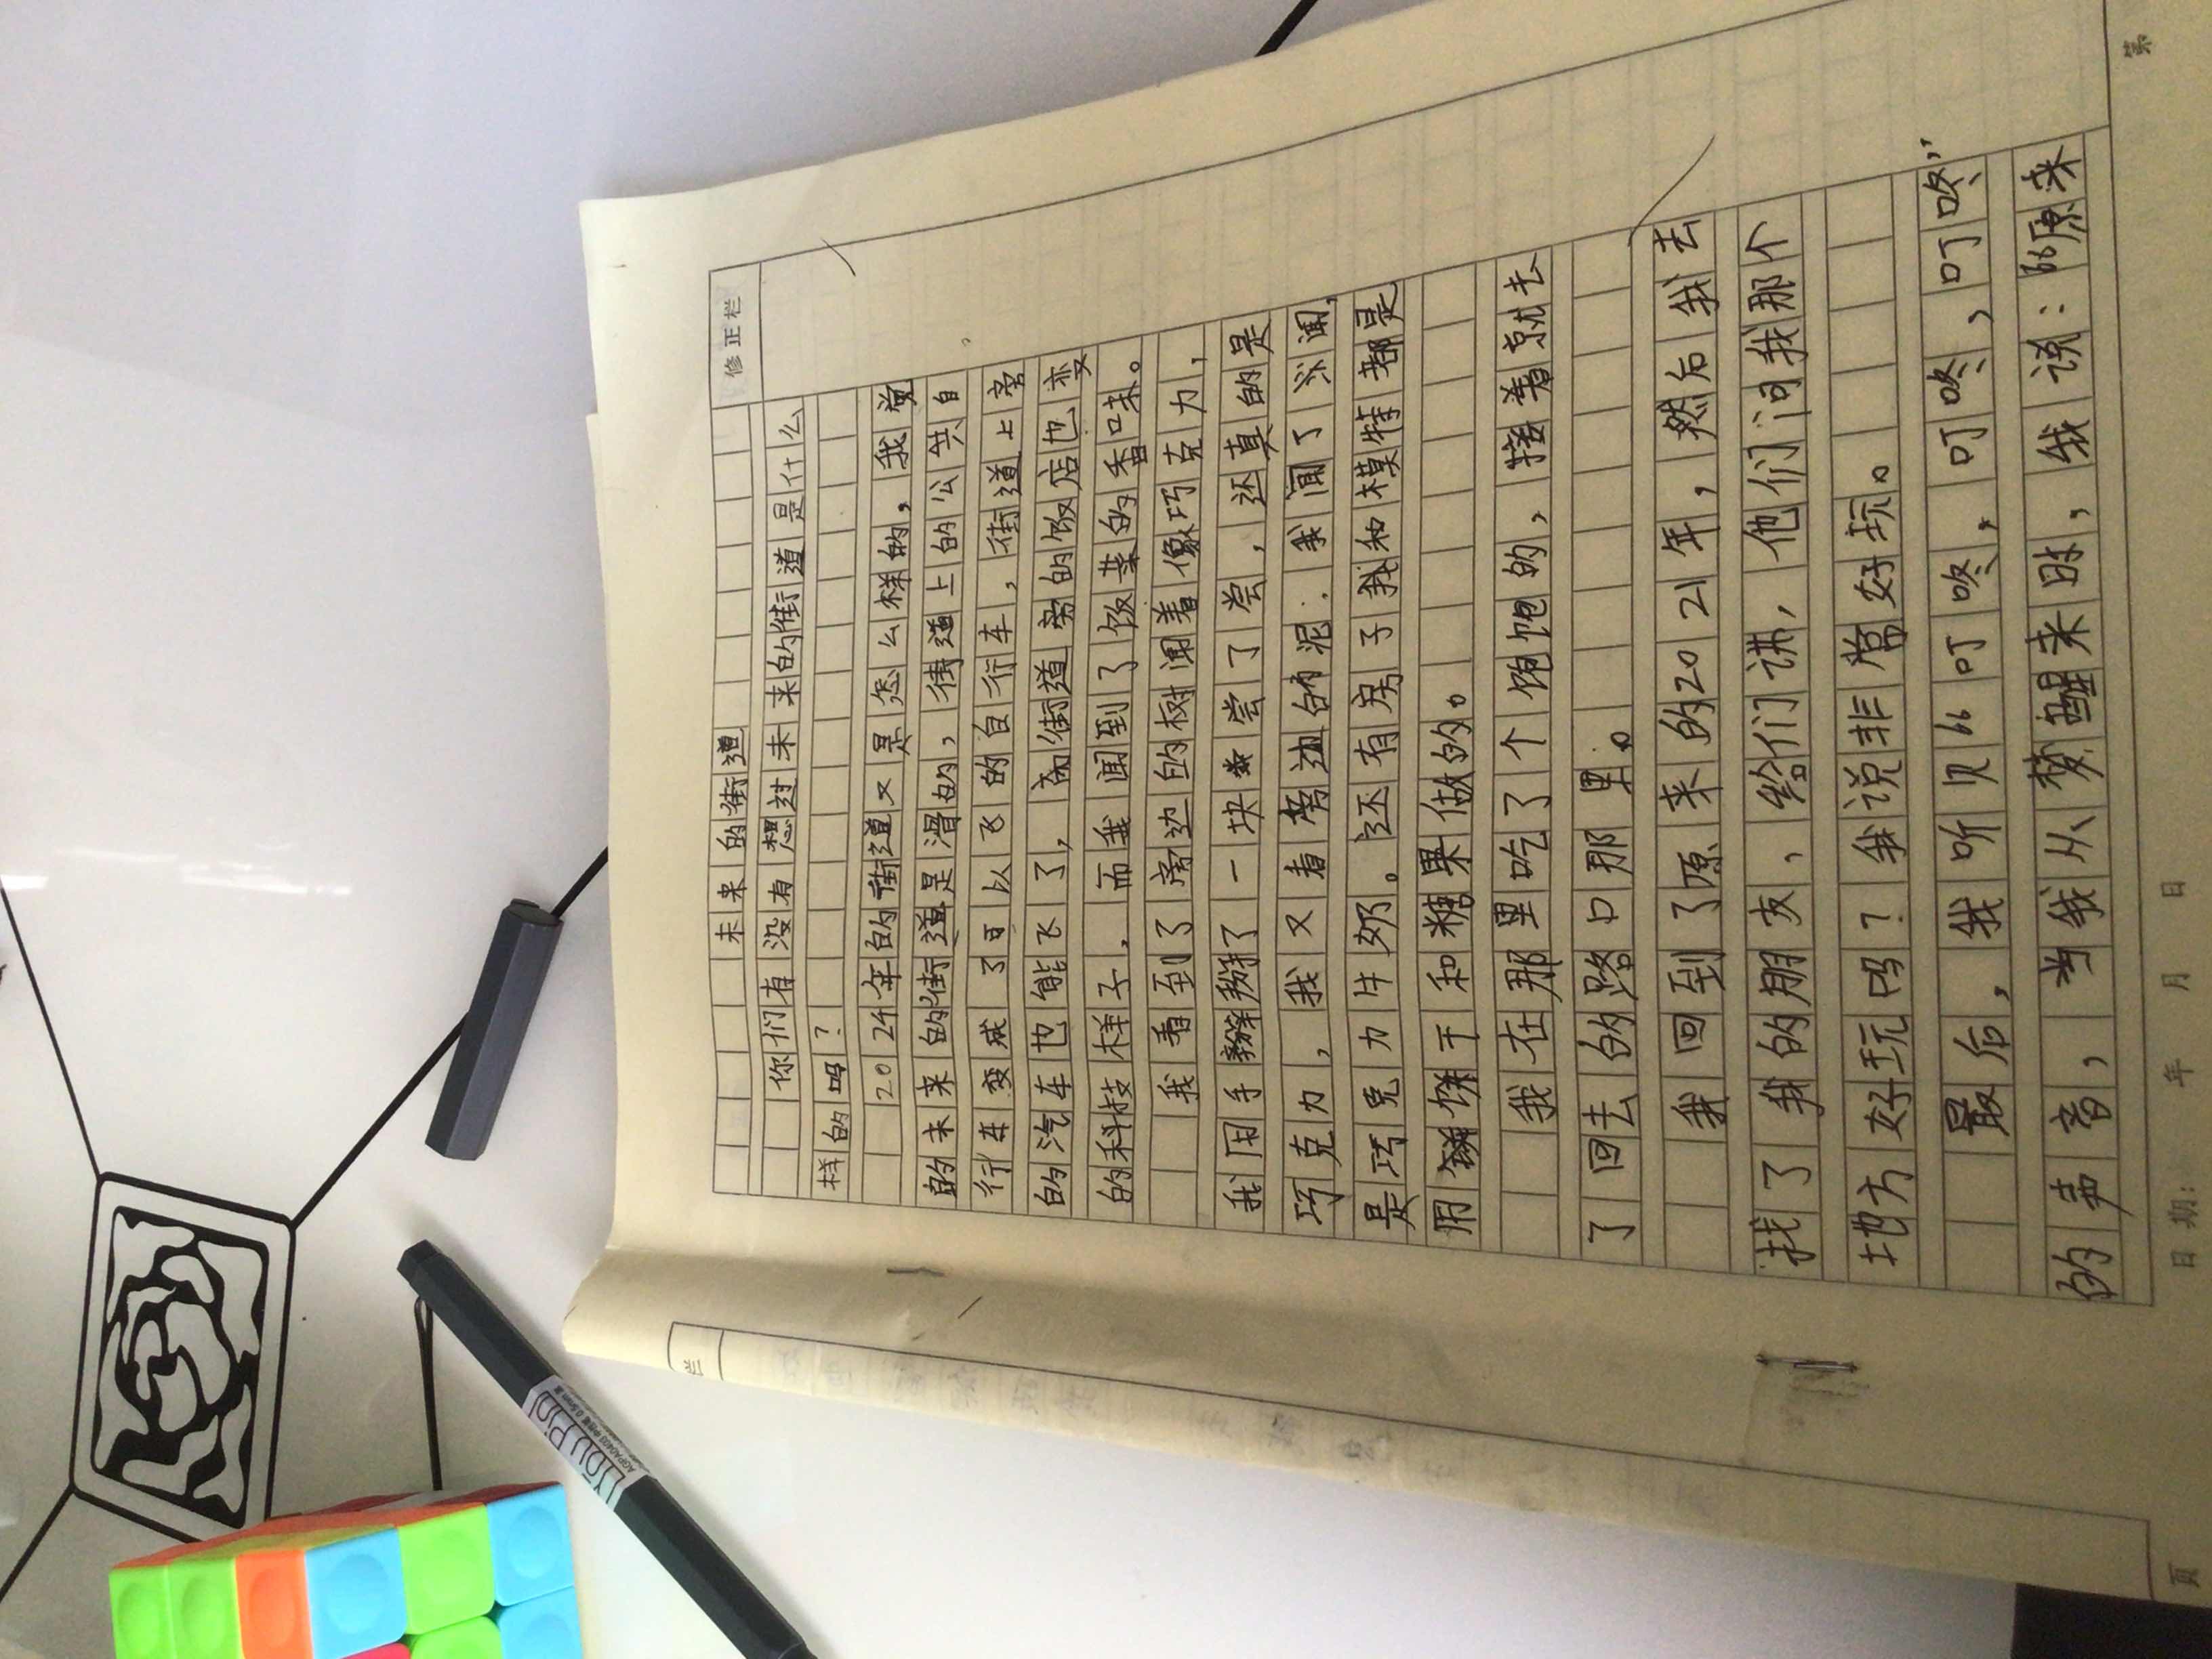 修正栏
未来的街道
你们有没有想过未来的街道是什么
样的吗？
2024年的街道又是怎么样的，我觉
的未来的街道是滑的，街道上的公共自
行车变成了可以飞的自行车，街道上旁
的汽车也能飞了，而街道旁的饭店也变
的科技样子，而我闻到了饭菜的香味。
我看到了旁边的树闻着像巧克力，
我用手掰了一块尝了尝，还真的是
巧克力，我又看旁边的泥，我闻了闻，
是巧克力牛奶。还有房子我和模特都是
用饼干和糖果做的。
我在那里吃了个饱饱的，接着就去
了回去的路口那里。
我回到了原来的2021年，然后我去
找了我的朋友，给们讲，他们问我那个
地方好玩吗？我说非常好玩。
最后，我听见“叮咚，叮咚，叮咚”
的声音，当我从梦醒来时，我说：“原来
日期： 年 月 日
第
页
栏